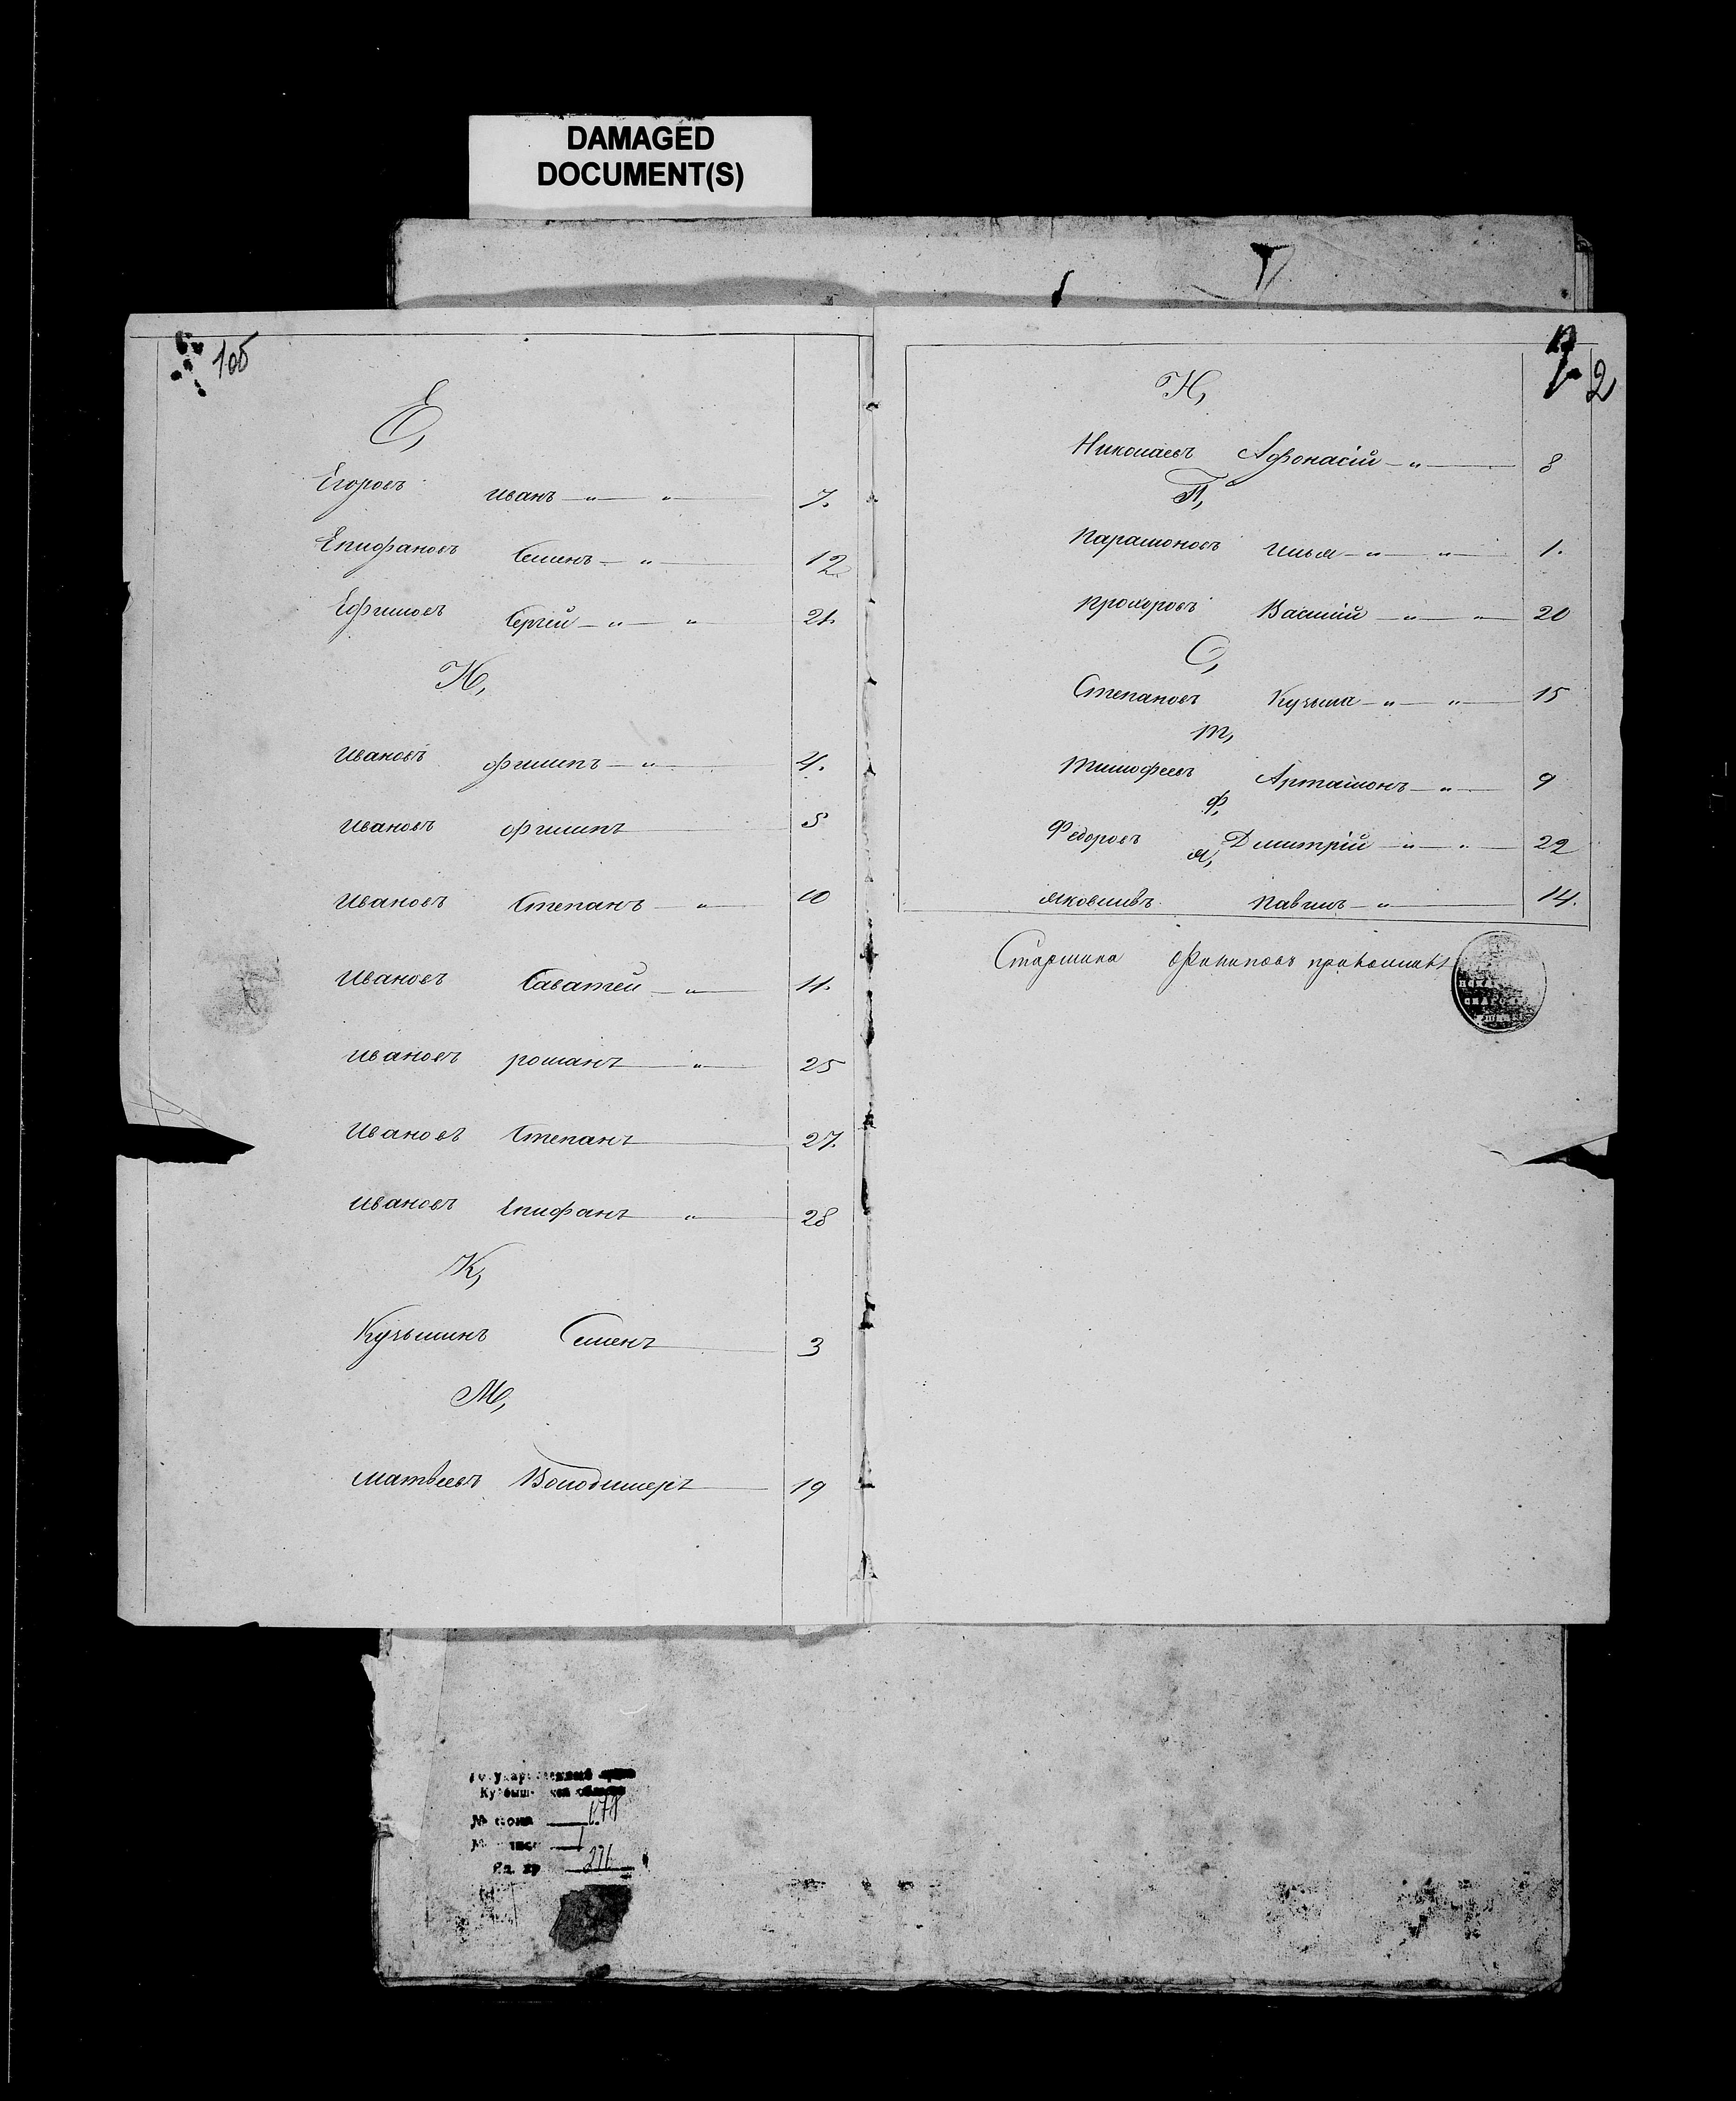 DAMAGED
DOCUMENT(S)
105
Е,
Егоровъ Иванъ — „ — „ — 7.
Епифановъ Семенъ — „ — 12
Ефимовъ Сергій — „ — „ 21.
И,
Ивановъ Филипъ — „ — 4.
Ивановъ Филипъ — 5
Ивановъ Степанъ — „ — 10
Ивановъ Саватей — „ — 11.
Ивановъ Романъ — „ — 25
Ивановъ Степанъ — 27.
Ивановъ Епифанъ „ — 28
К,
Кузьминъ Семенъ — 3
М,
Матвеевъ Володимеръ — 19
2
Н,
Николаевъ Афонасій — „ — 8
П,
Парамоновъ Илья — „ — „ — 1.
Прохоровъ Василій — „ — „ — 20
С,
Степановъ Кузьма — „ — „ — 15
Т,
Тимофеевъ Артамонъ — „ — 9
Ф,
Федоровъ Дмитрій — „ — „ — 22
Я,
Яковлевъ Павилъ — „ — 14.
Старшина Филиповъ
1